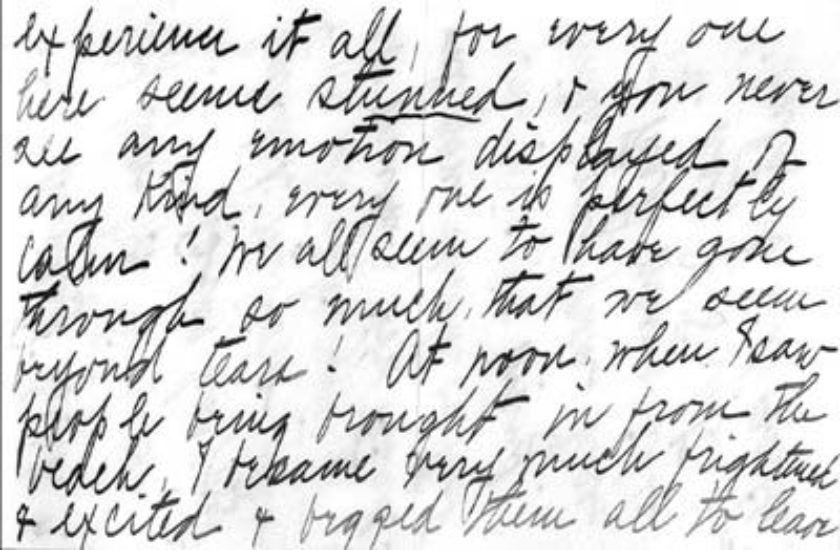 experience it all, for every one
here seems stunned, & you never
see any emotion displayed of
any kind, every one is perfectly
calm! We all seem to have gone
through so much, that we seem
beyond tears! At noon, when I saw
people being brought in from the
beach, I became very much frightened
& excited & begged them all to leave